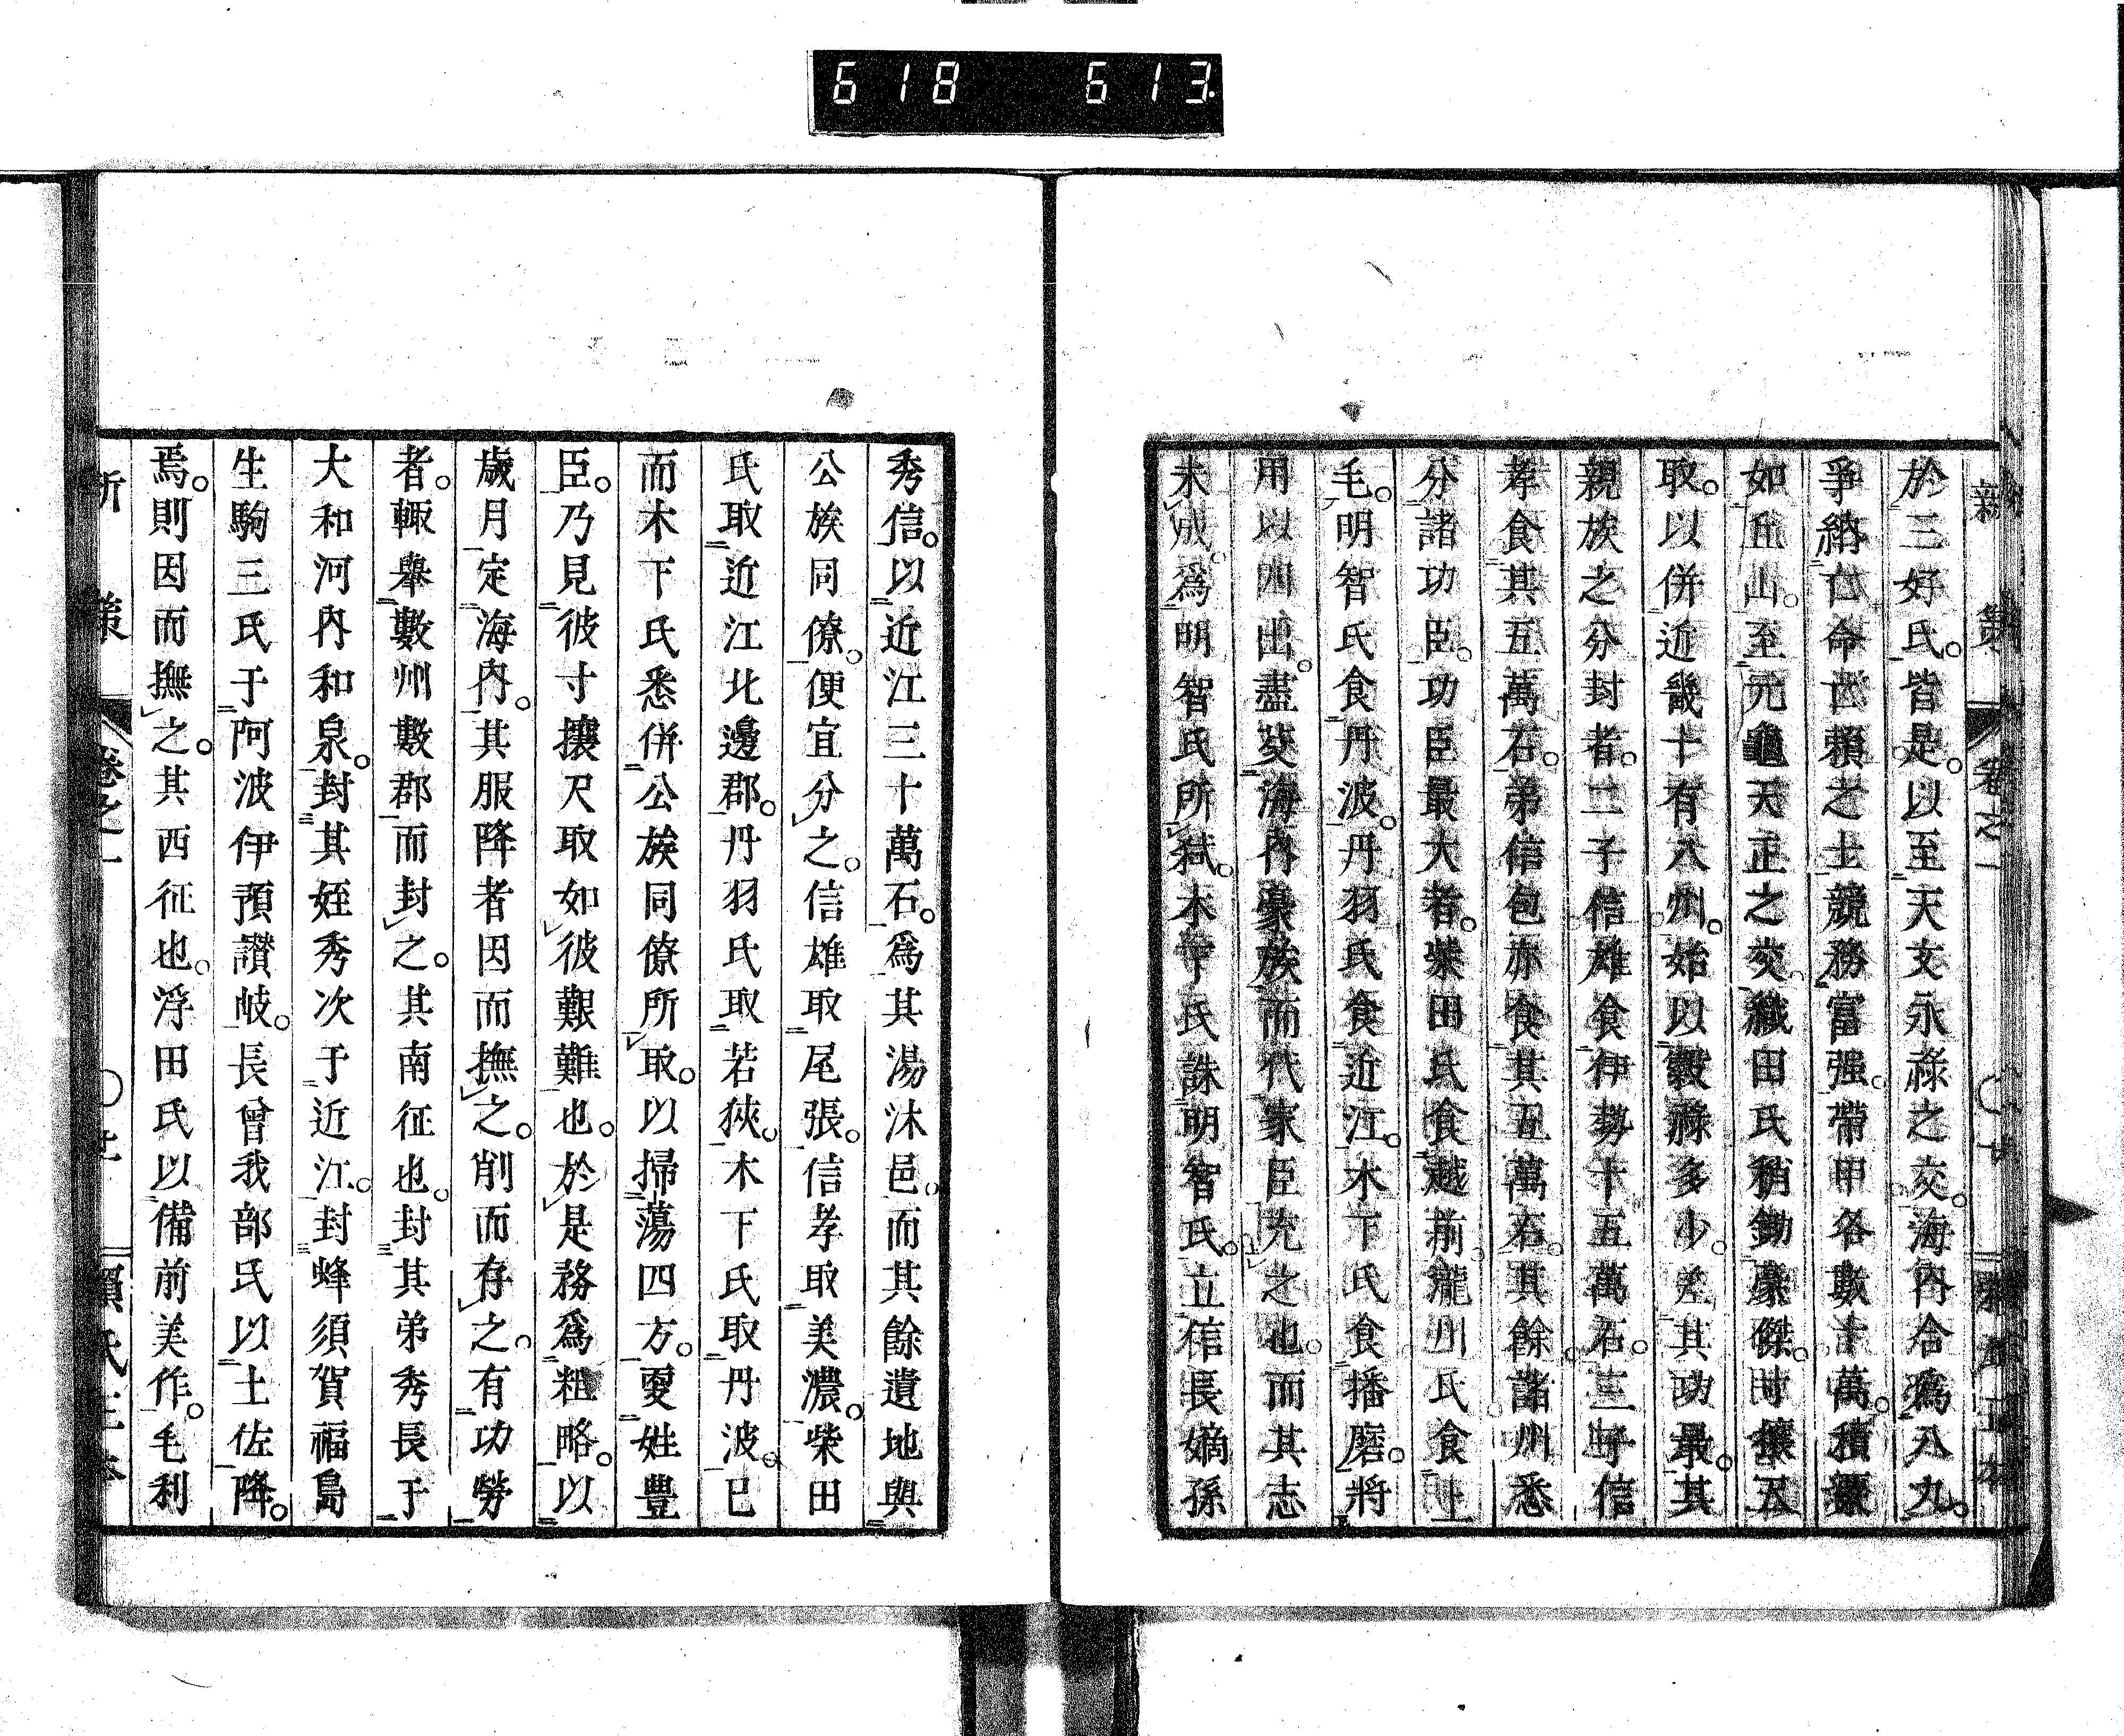 618 613
新策 卷之一
於三好氏。皆是。以至天文永祿之交。海內合爲八九。
爭綹亡命亡賴之士。競務富强。帶甲各數十萬。積粟
如丘山。至元龜天正之交。織田氏稍鋤豪傑。時攘尺
取。以併近畿十有八州。始以穀祿多少。差其功最。其
親族之分封者。二子信雄食伊勢十五萬石。三子信
孝食其五萬石。弟信包亦食其五萬石。其餘諸州悉
分諸功臣。功臣最大者。柴田氏食越前。瀧川氏食上
毛。明智氏食丹波。丹羽氏食近江。木下氏食播磨。將
用以四出。盡芟海內豪族而代家臣充之也。而其志
未成。爲明智氏所弑。木下氏誅明智氏。立信長嫡孫
秀信。以近江三十萬石。爲其湯沐邑。而其餘遺地與
公族同僚。便宜分之。信雄取尾張。信孝取美濃。柴田
氏取近江北邊郡。丹羽氏取若狹。木下氏取丹波。已
而木下氏悉併公族同僚所取。以掃蕩四方。更姓豐
臣。乃見彼寸攘尺取如彼艱難也。於是務爲粗略。以
歲月定海內。其服降者因而撫之。削而存之。有功勞
者。輙舉數州數郡而封之。其南征也。封其弟秀長于
大和河內和泉。封其姪秀次于近江。封蜂須賀福島
生駒三氏于阿波伊預讃岐。長曾我部氏以土佐降。
焉。則因而撫之。其西征也。浮田氏以備前美作。毛利
新策 卷之一